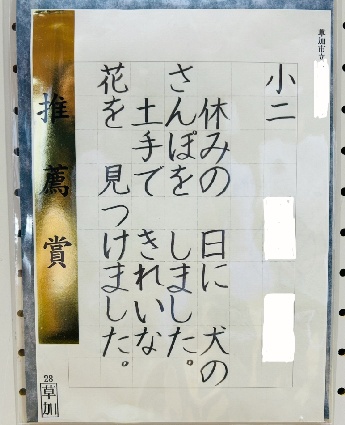 草加市立
小二
休みの 日に 犬の
さんぽを しました。
土手で きれいな
花を 見つけました。
推薦賞
28
草加